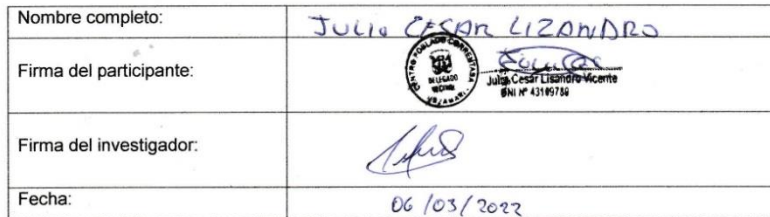 Nombre completo:
JULIO CESAR LIZANDRO
Firma del participante:
CENTRO POBLADO CORRENTADA
DELEGADO
VECINAL
Julio Cesar Lisandro Vicente
DNI Nº 43109780
Firma del investigador:
Fecha:
06/03/2022